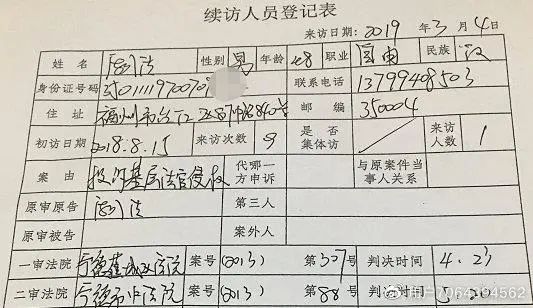 续访人员登记表
来访日期 2019 年 3 月 4 日
姓名 性别 男 年龄 48 职业 自由 民族 汉
身份证号码 联系电话 13799408503
住址 福州市台江区 号 邮编 350004
初访日期 2018.8.15 来访次数 9 是否集体访 / 来访人数 1
案由 投诉基层法官侵权 代哪一方申诉 与原案件当事人关系
原审原告 第三人
原审被告 案外人
一审法院 宁德蕉城区法院 案号 (2013) 第 307 号 判决时间 4.23
二审法院 宁德市中法院 案号 (2013 第 88 号 判决时间